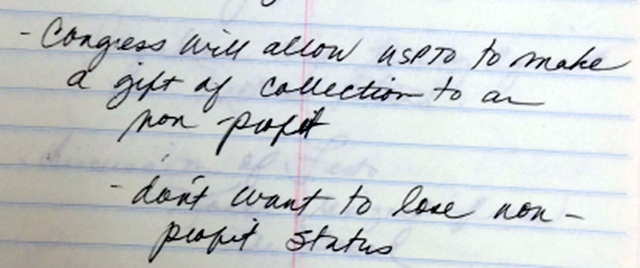 - Congress will allow USPTO to make
a gift of collection to an
non-profit
- don't want to lose non-
profit status